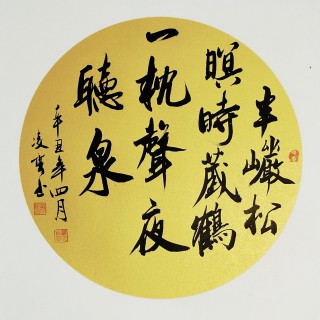 半巖松
暝時藏鶴
一枕聲夜
聽泉
辛丑年四月